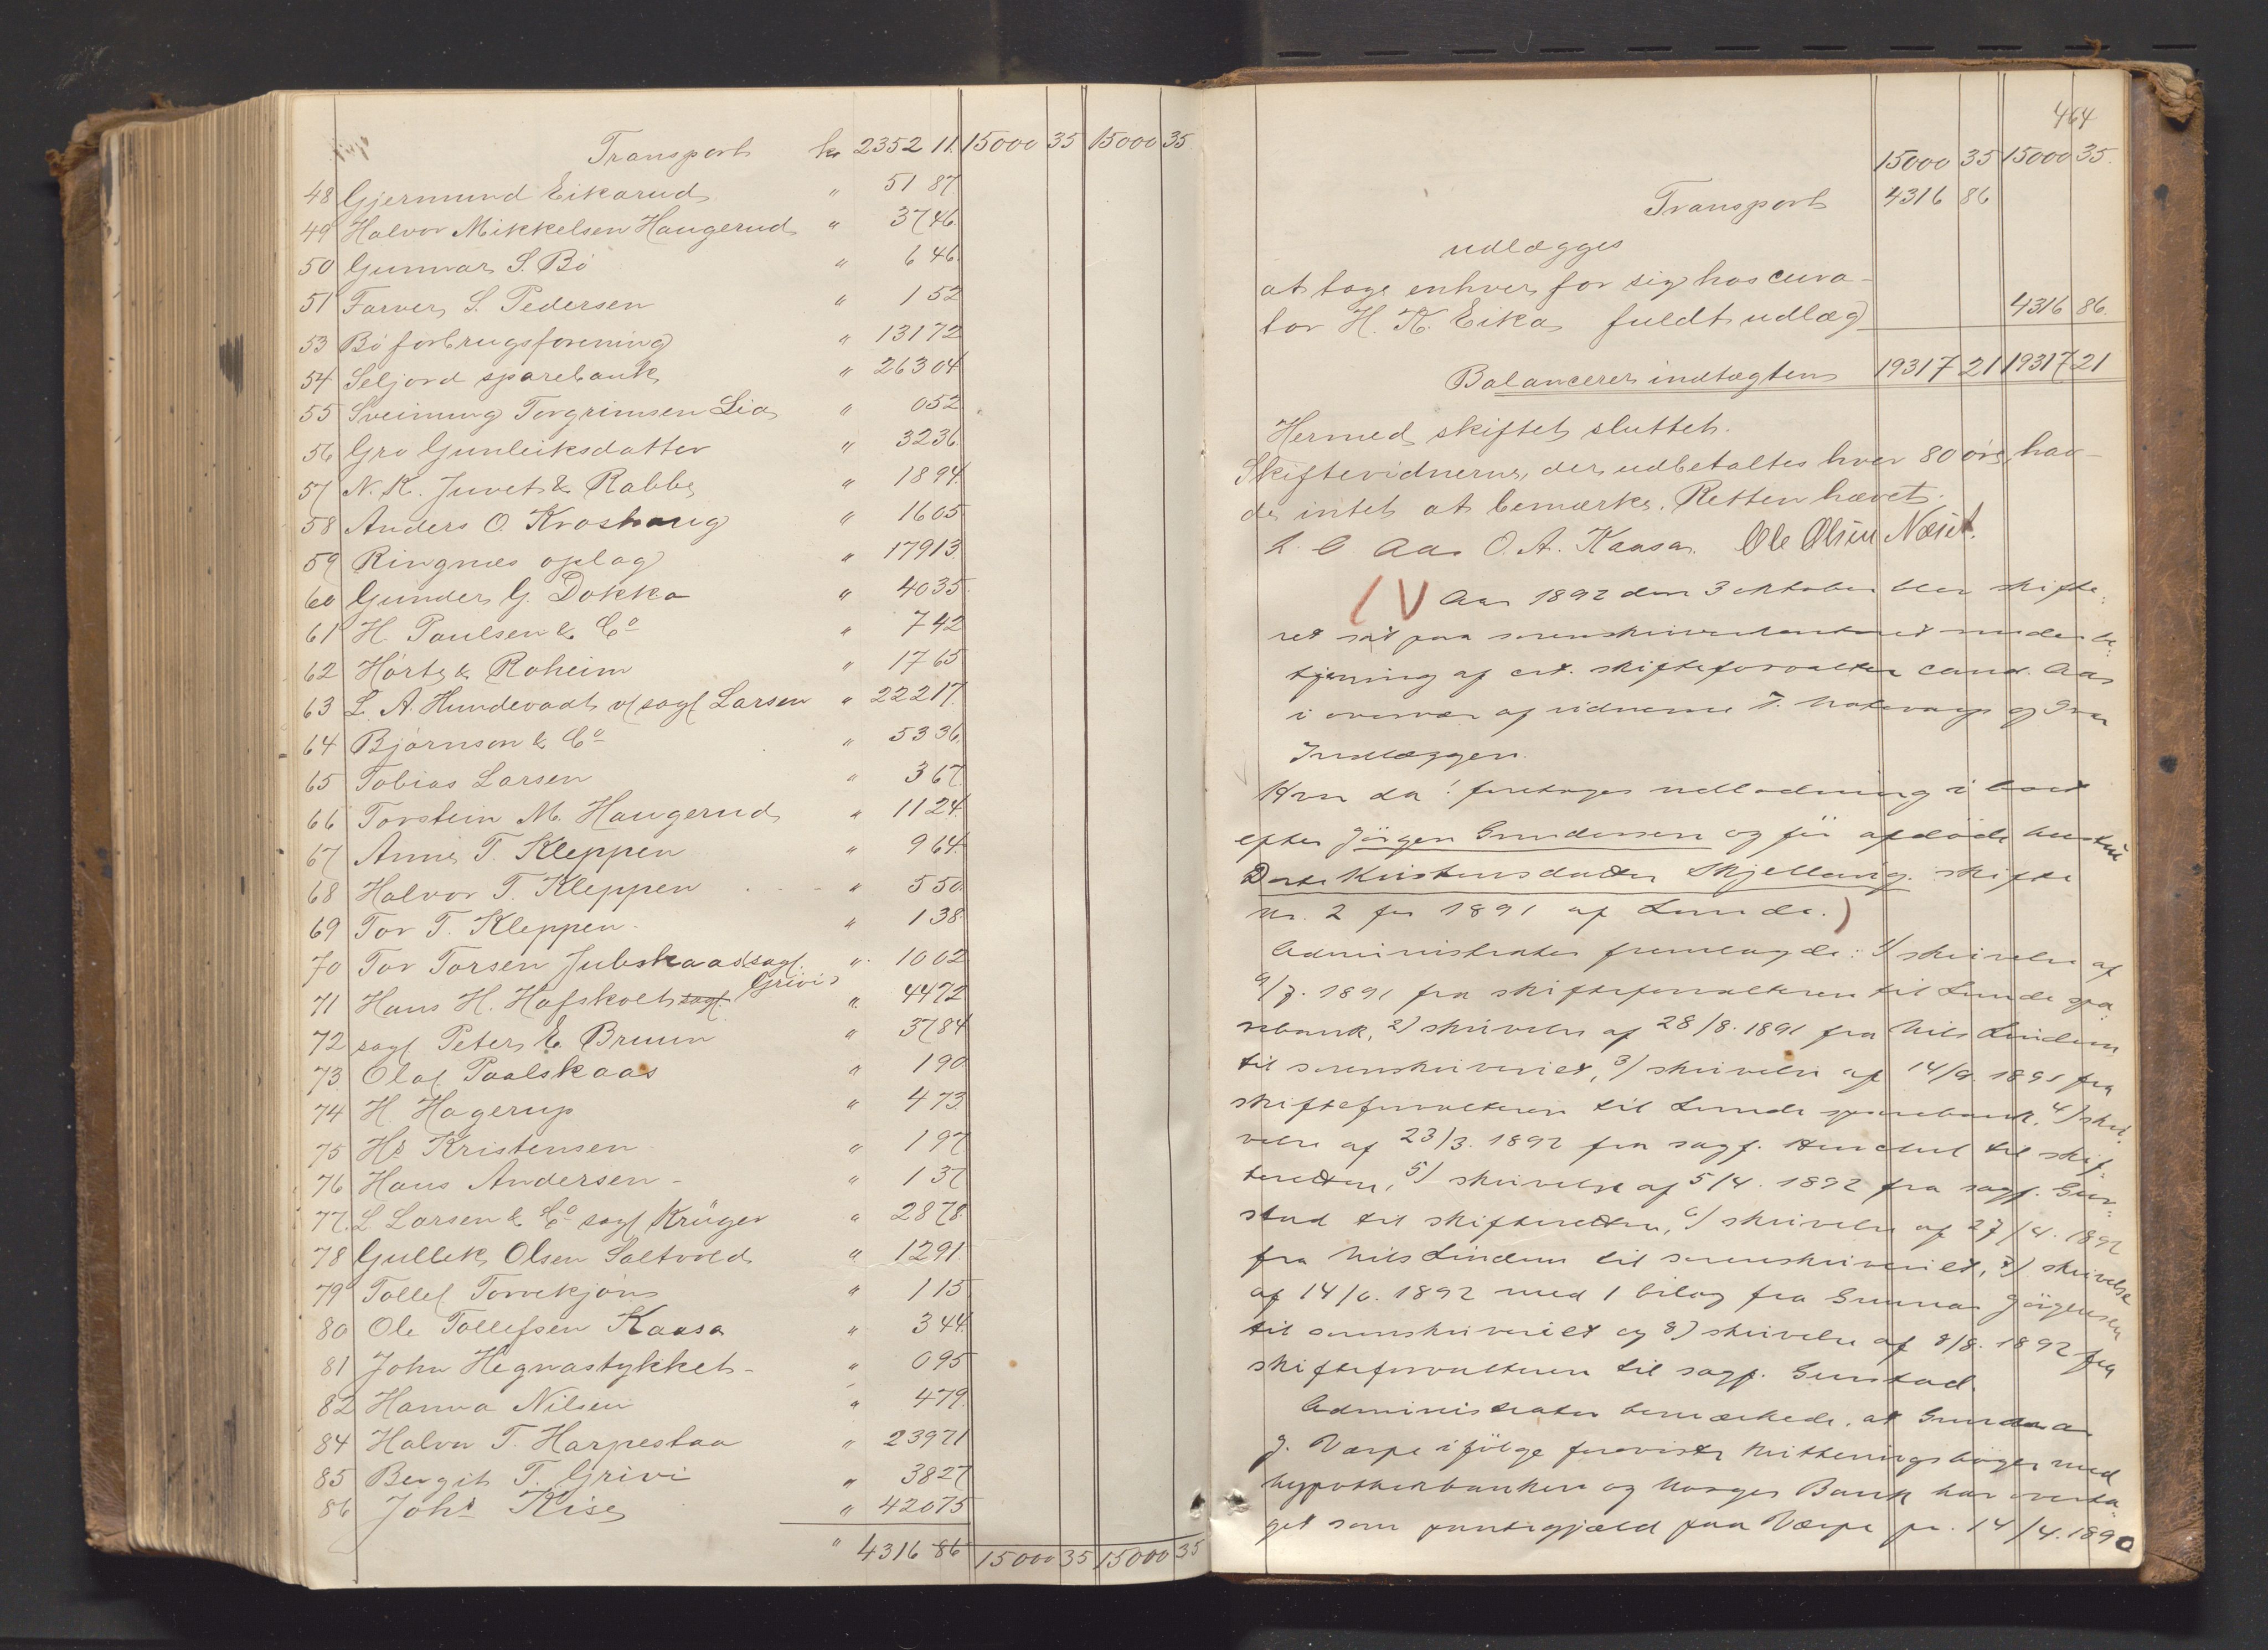 Transport kr 2352 11. 15000 35 15000 35.
48 Gjermund Eikarud " 51 87
49 Halvor Mikkelsen Haugerud " 37 46.
50 Gunnar S. Bö " 6 46.
51 Farver S. Pedersen " 1 52
53 Bö forbrugsforening " 131 72
54 Seljord sparebank " 263 04
55 Sveinung Torgrimsen Lia " 0 52
56 Gro Gunleiksdatter " 32 36
57 N. K. Juvet & Rabbe " 18 94.
58 Anders O. Kroshaug " 16 05
59 Ringnes oplag " 179 13.
60 Gunder G. Dokka " 40 35.
61 H. Paulsen & Co " 7 42
62 Hörte & Roheim " 17 65
63 L. A. Hundevadt v/ sagf Larsen " 222 17.
64 Bjørnson & Co " 53 36.
65 Tobias Larsen " 3 67.
66 Torstein M. Haugerud " 11 24.
67 Anne T. Kleppen " 9 64.
68 Halvor T. Kleppen " 5 50.
69 Tor T. Kleppen. " 1 38
70 Tor Torsen Jubskaas sagf. Grivi " 10 02
71 Hans H. Hafskolt sagf. " 44 72
72 sagf Peter E. Bruun " 37 84
73 Olaf Paalskaas " 1 90
74 H. Hagerup " 4 73.
75 Hs Kristensen " 1 97
76 Hans Andersen - " 1 37
77. L. Larsen & Co sagf Krüger " 28 78.
78 Gullek Olsen Saltvold " 12 91.
79 Tollef Torvekjøns " 1 15
80 Ole Tollefsen Kaasa " 3 44.
81 John Hegnastykket - " 0 95
82 Hanna Nilsen " 4 79.
84 Halvor T. Harpestaa " 239 71
85 Bergit T. Grivi " 38 27
86 Johs Kise " 420 75
" 4316 86 15000 35 15000 35
464
15000 35 15000 35.
Transport 4316 86
udlægges
at tage enhver for sig hos cura-
tor H. K. Eika fuldt udlæg 4316 86.
Balancerer indtægten 19317 21 19317 21
Hermed skiftet sluttet.
Skiftevidnerne, der udbetaltes hver 80 øre, hav-
de intet at bemærke. Retten hævet.
Aas O. A. Kaasa. Ole Olsen Næset.
Aar 1892 den 3 oktober blev skifte-
ret sat paa sorenskriverkontoret under be-
tjening af cst. skifteforvalter cand. Aas
i overvær af vidnerne T. og Iver
Indlæggen.
Hvor da: foretoges udlodning i boet
efter Jörgen Gundersen og før afdøde hustru
Dorte Kristensdatter Skjellaug. skifte
no. 2 for 1891 af Lunde.)
Administrator fremlagde: 1/ skrivelse af
9/7. 1891 fra skifteforvalteren til Lunde spa-
rebank, 2) skrivelse af 28/8. 1891 fra Nils Lindem
til sorenskriveriet, 3) skrivelse af 14/9. 1891 fra
skifteforvalteren til Lunde sparebank, 4) skri-
velse af 23/3. 1892 fra sagf. til skif-
teretten, 5) skrivelse af 5/4. 1892 fra sagf. Gun-
stad til skifteretten, 6) skrivelse af 27/4. 1892
fra Nils Lindem til sorenskriveriet, 7) skrivelse
af 14/6. 1892 med 1 bilag fra Gunnar Jörgensen
til sorenskriveriet og 8) skrivelse af 8/8. 1892 fra
skifteforvalteren til sagf. Gunstad.
Administrator bemærkede, at
J. Værpe ifölge foreviste kvitteringsböger med
hypothekbanken og Norges Bank har overta-
get som pantegjæld paa Værpe pr. 14/4. 1890